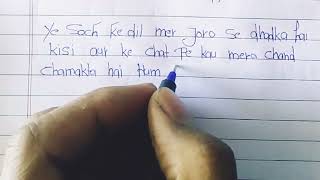 Ye Soch ke dil mer Joro se dhadka hai
kisi aur ke chat Pe kau mera chand
chamakta hai Hum